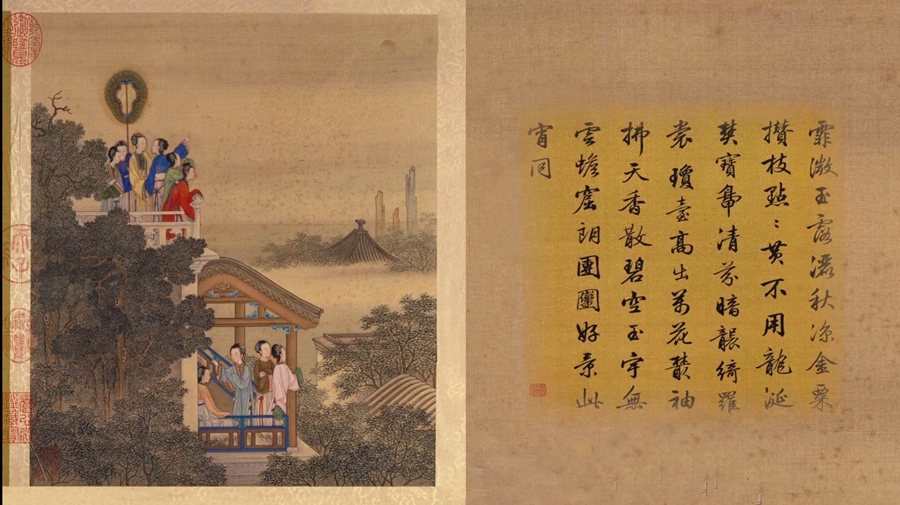 霏微玉露濯秋涼金粟
攢枝點點黃不用龍涎
焚寶鼎清芬暗襲綺羅
裳瓊臺高出萬花叢袖
拂天香散碧空玉宇無
雲蟾窟朗團圞好景此
宵同